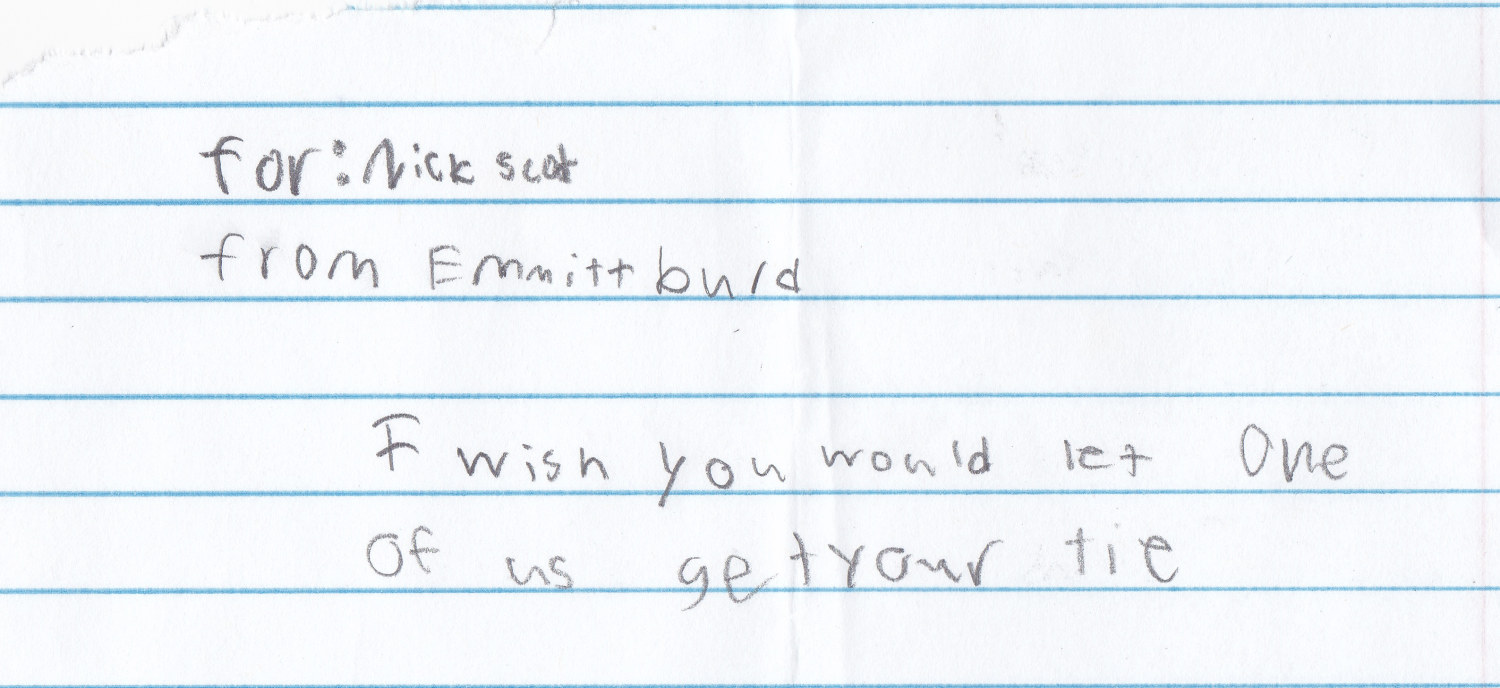 for: Nick scot
from Emmitt burd
I wish you would let One
Of us get your tie